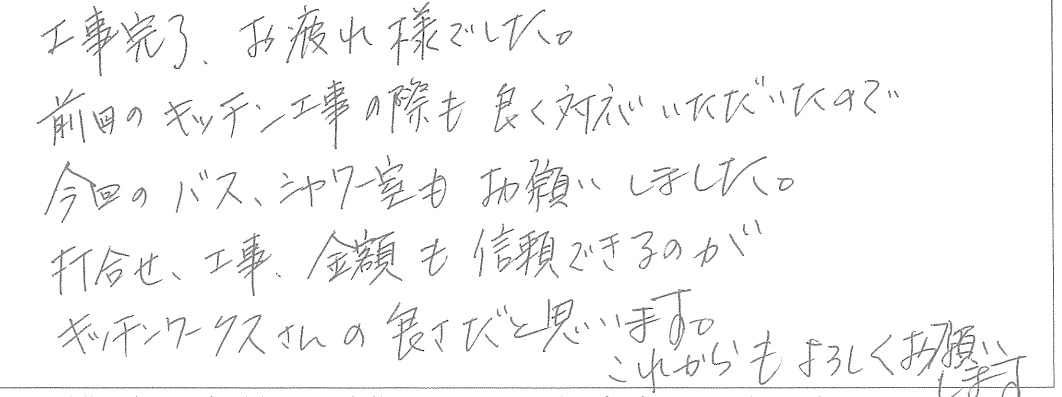 工事完了、お疲れ様でした。
前回のキッチン工事の際も良く対応いただいたので
今回のバス、シャワー室もお願いしました。
打合せ、工事、金額も信頼できるのが
キッチンワークスさんの良さだと思います。
これからもよろしくお願い
します